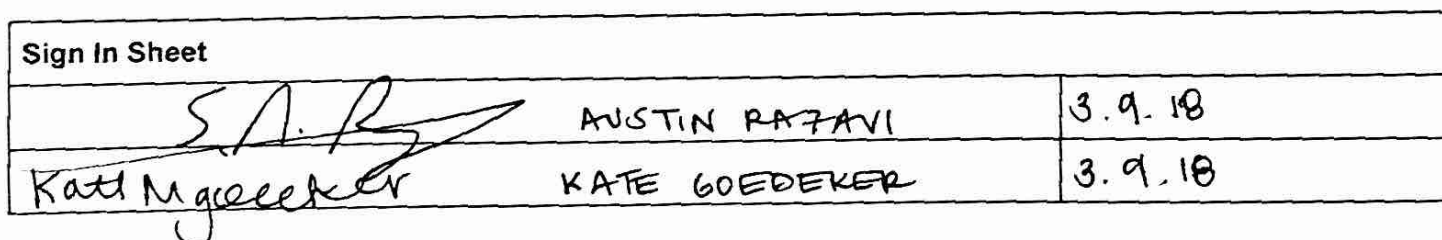 Sign In Sheet
S.A.R AUSTIN RAZAVI 3.9.18
Kate M goedeker KATE GOEDEKER 3.9.18